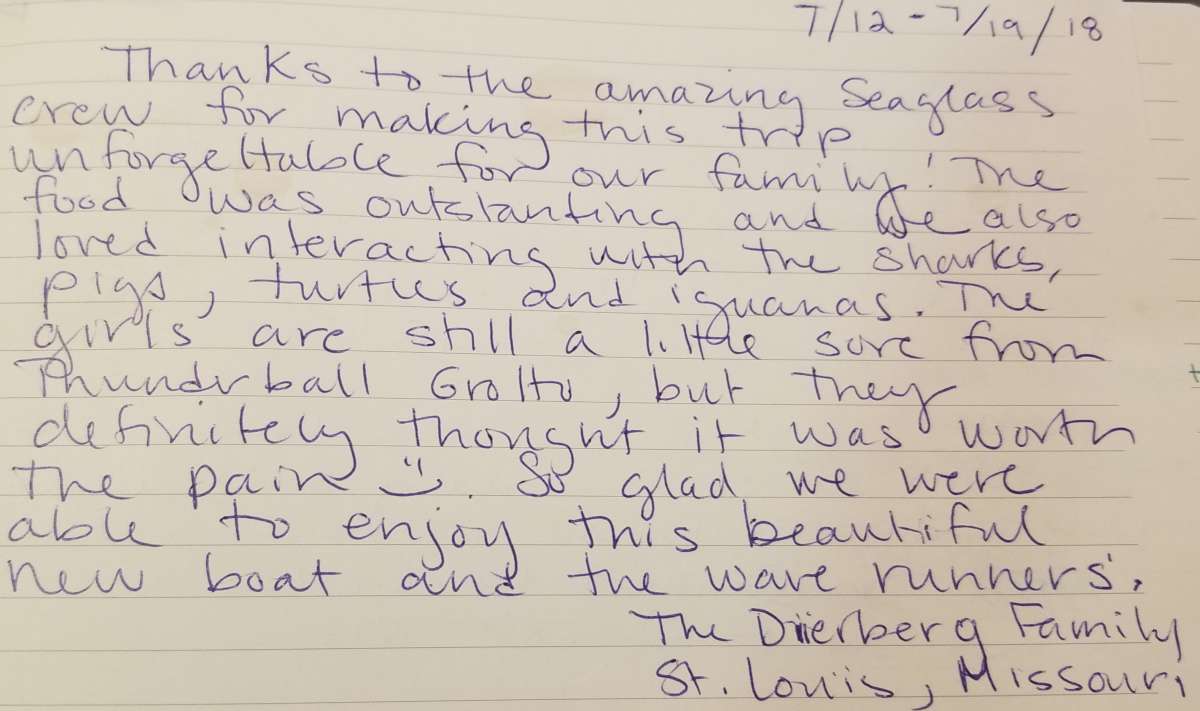 7/12 - 7/19/18
Thanks to the amazing Seaglass
crew for making this trip
unforgettable for our family! The
food was outstanting and We also
loved interacting with the sharks,
pigs, turtles and iguanas. The
girls are still a little sore from
Thunderball Grotto, but they
definitely thought it was worth
the pain :). So glad we were
able to enjoy this beautiful
new boat and the wave runners.
The Drierberg Family
St. Louis, Missouri